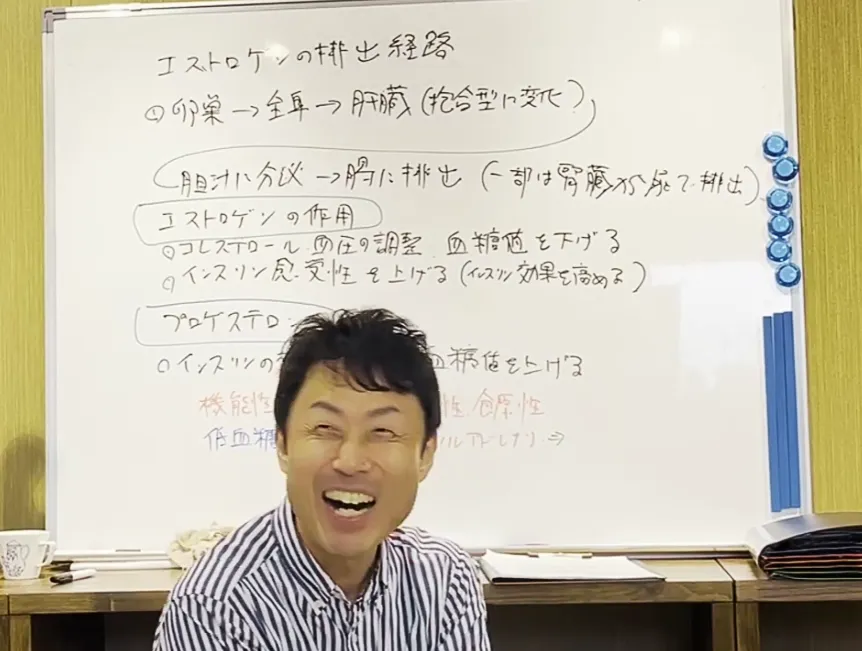 エストロゲンの排出経路
① 卵巣→全身→肝臓(抱合型に変化)
胆汁に分泌→腸に排出(一部は腎臓から尿で排出)
エストロゲンの作用
○コレステロール 血圧の調整 血糖値を下げる
○インスリン感受性を上げる(インスリン効果を高める)
プロゲステロ
○インスリンの 血糖値を上げる
機能性 性 食原性
低血糖 ルアドレナリ⇒